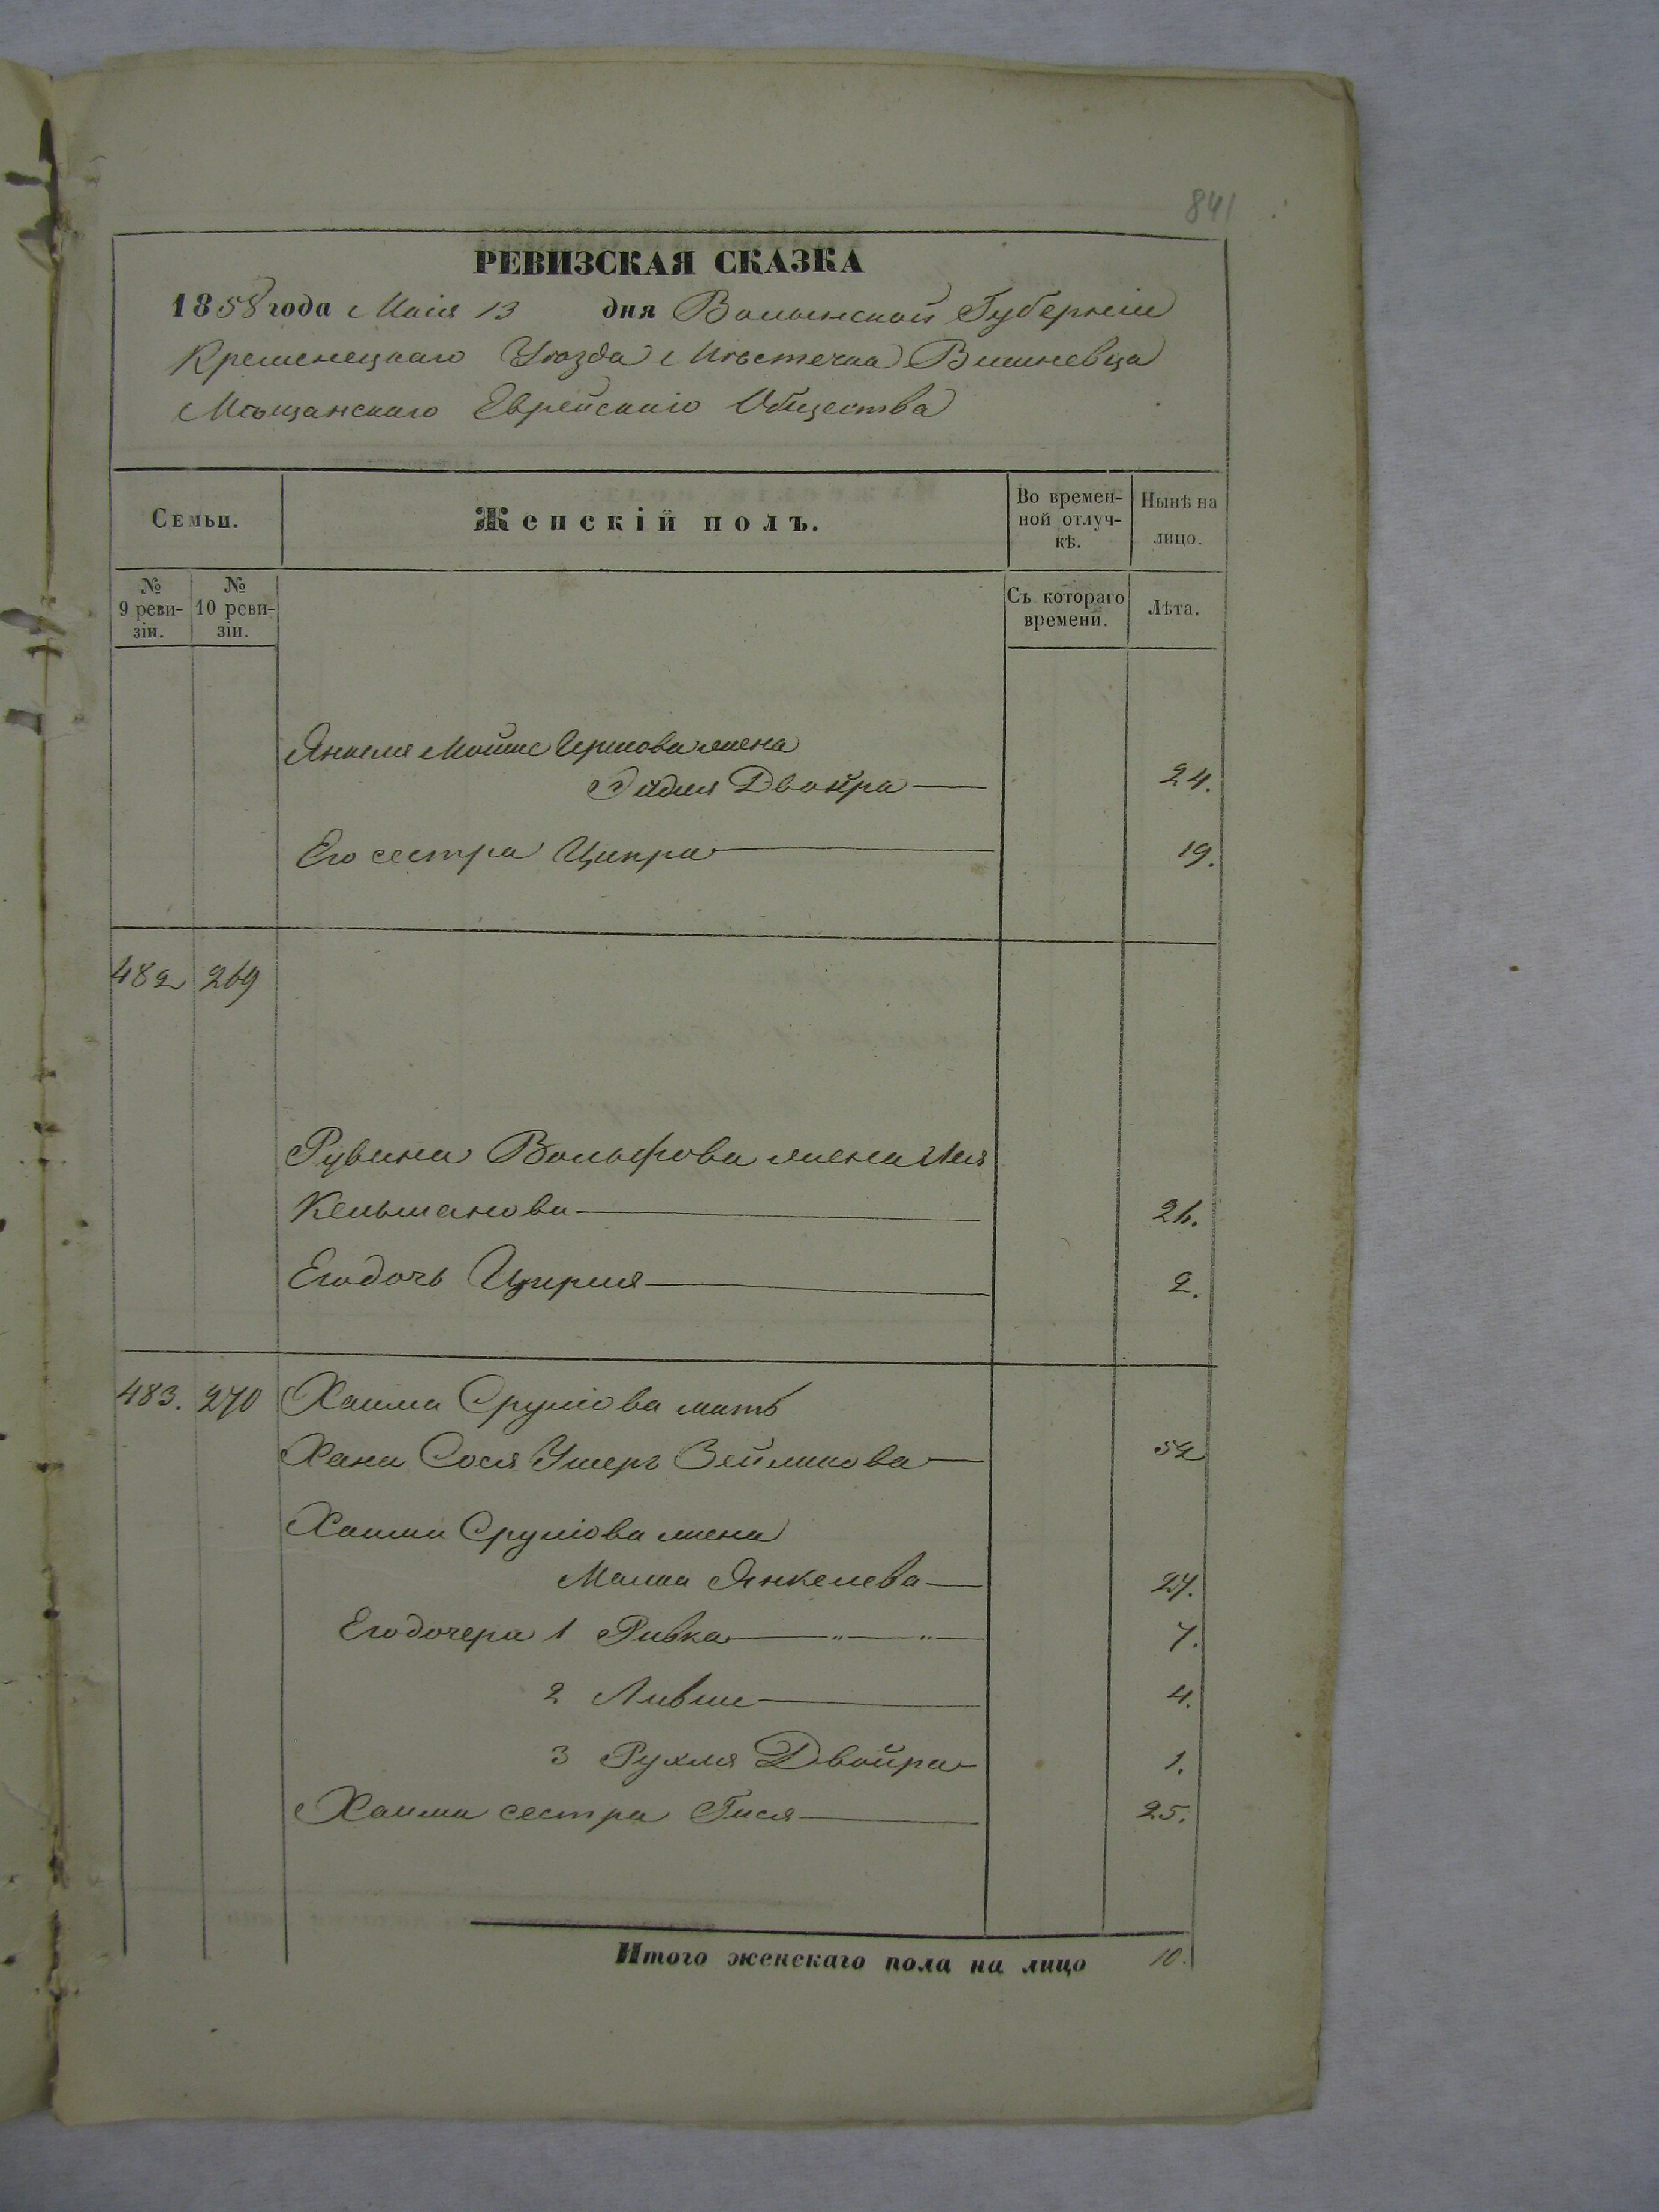 841
РЕВИЗСКАЯ СКАЗКА
1858 года Маія 13 дня Волынской Губерніи
Кременецкаго Уѣзда Мѣстечка Вишневца
Мѣщанскаго Еврейскаго Общества
Семьи.
Женскій полъ.
Во времен-
ной отлуч-
кѣ.
Нынѣ на
лицо.
№
9 реви-
зіи.
№
10 реви-
зіи.
Съ котораго
времени.
Лѣта.
Янкеля Мошке Иршкова жена
Эйдля Двойра 24.
Его сестра Ципра 19.
482 269
Рувина Вольфова жена
Кельманова 26.
Его дочь Ципря 2.
483. 270 Хаима Срулiова мать
Хана Сося Ушеръ Зейликова 52
Хаима Срулiова жена
Малка Янкелева 27.
Его дочера 1 Ривка 7.
2 Ливше 4.
3 Рухля Двойра 1.
Хаима сестра Гися 25.
Итого женскаго пола на лицо 10.